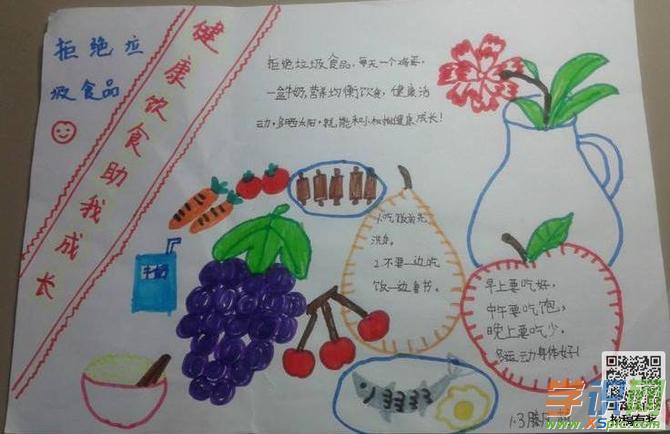 拒绝垃
圾食品
健康饮食助我成长
拒绝垃圾食品，每天一个鸡蛋，
一盒牛奶，营养均衡饮食，健康活
动，多晒太阳，就能和小松柏健康成长！
1.吃饭前先
洗手。
2.不要一边吃
饭一边看书。
牛奶
早上要吃好，
中午要吃饱，
晚上要吃少。
多运动身体好！
1.3